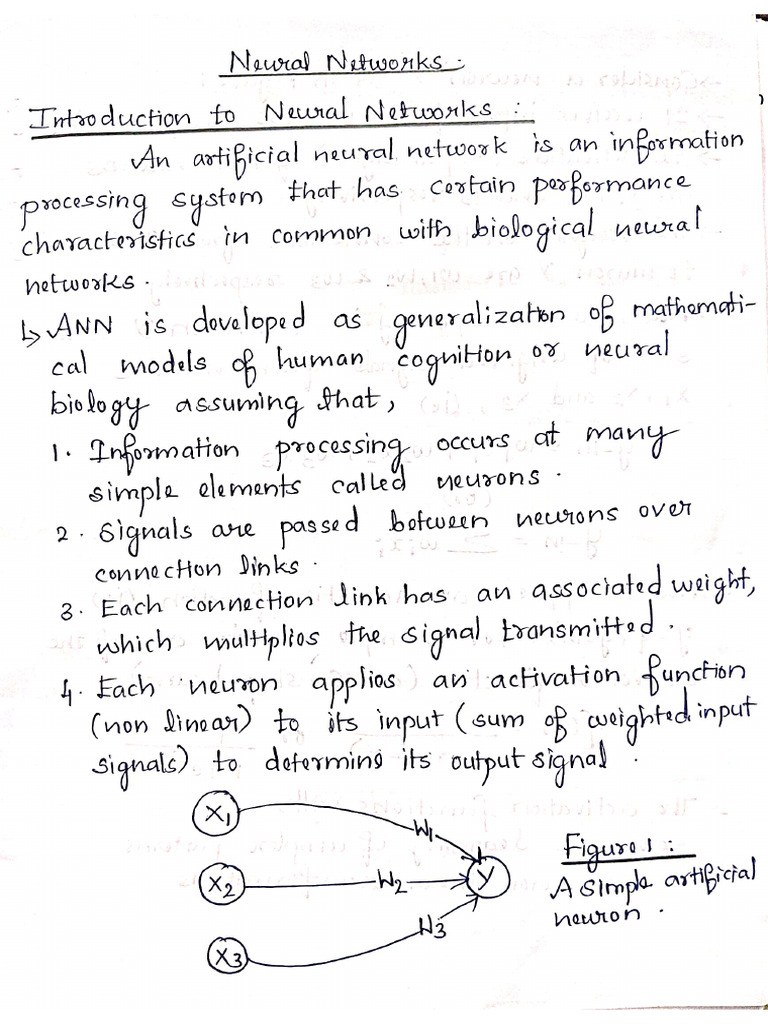 Neural Networks.
Introduction to Neural Networks :
An artificial neural network is an information
processing system that has certain performance
characteristics in common with biological neural
networks.
↳ ANN is developed as generalization of mathemati-
cal models of human cognition or neural
biology assuming that,
1. Information processing occurs at many
simple elements called neurons.
2. Signals are passed between neurons over
connection links.
3. Each connection link has an associated weight,
which multiplies the signal transmitted.
4. Each neuron applies an activation function
(non linear) to its input (sum of weighted input
signals) to determine its output signal.
X1
W1
X2
W2
Y
X3
W3
Figure 1 :
A simple artificial
neuron.